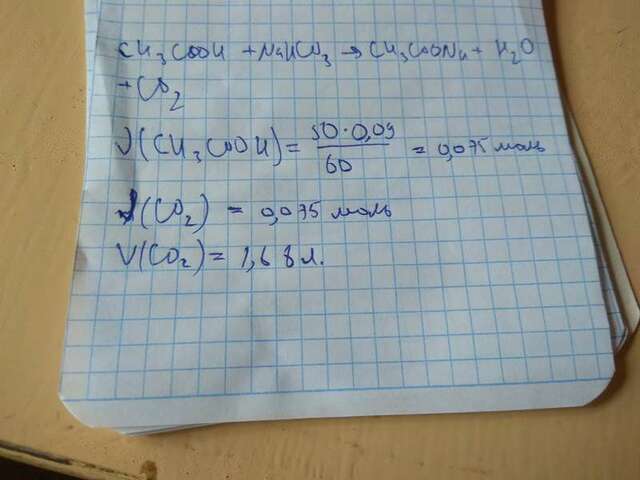 CH₃COOH + NaHCO₃ → CH₃COONa + H₂O
+ CO₂
ν(CH₃COOH) = 50·0,09 / 60 = 0,075 моль
ν(CO₂) = 0,075 моль
V(CO₂) = 1,68 л.